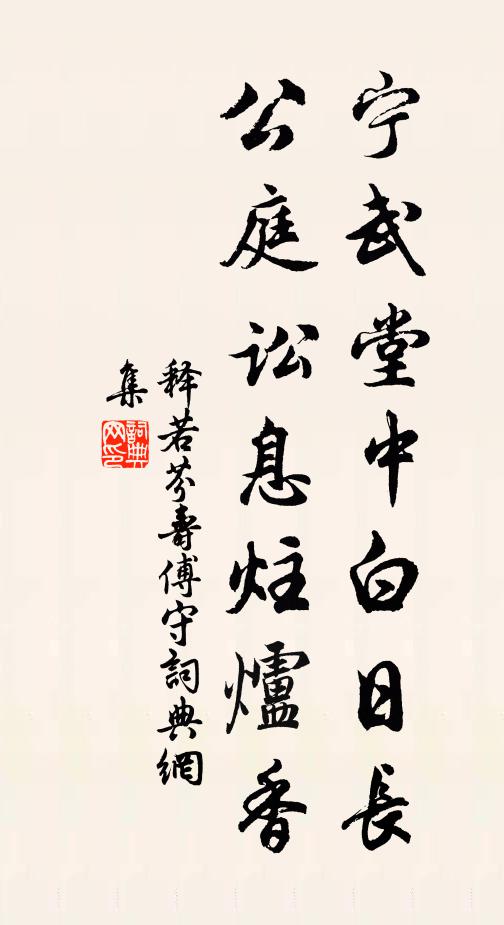 宁武堂中白日長
公庭訟息炷爐香
釋若芬壽傅守詞典網
集
詞典
网印